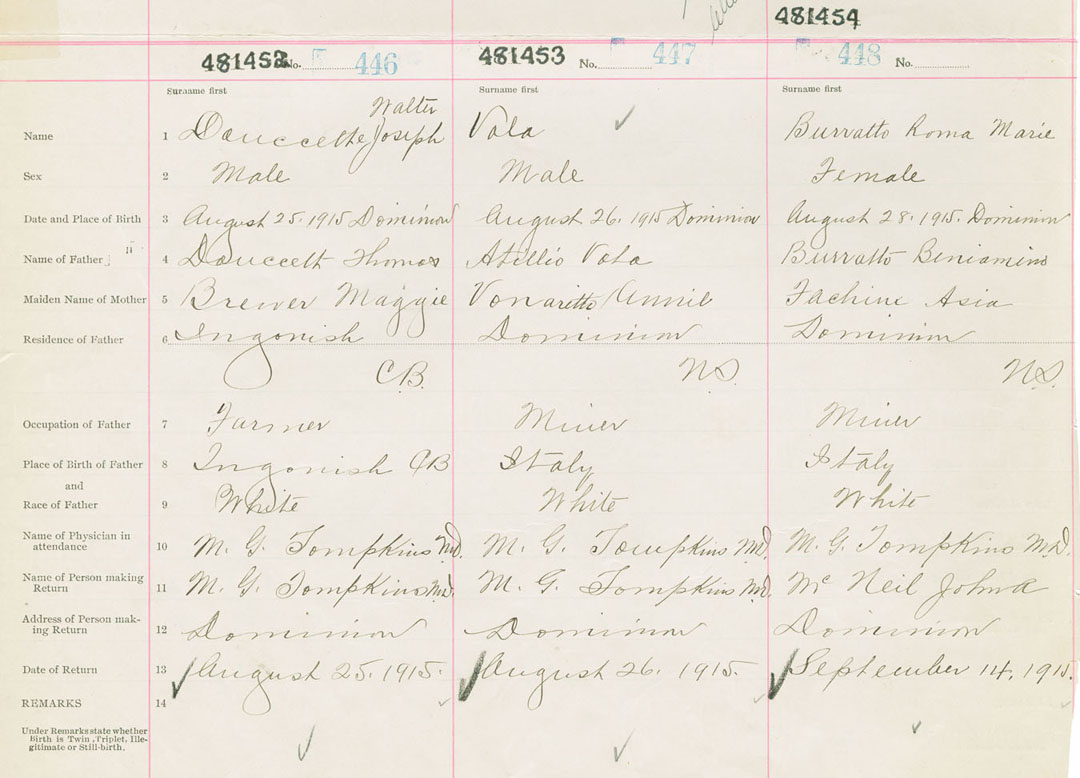 481454
481452 No. 446 481453 No. 447 448 No.
Surname first Surname first Surname first
Walter
Name 1 Douccette Joseph Vola Burratto Roma Marie
Sex 2 Male Male Female
Date and Place of Birth 3 August 25. 1915 Dominion August 26. 1915 Dominion August 28. 1915. Dominion
Name of Father 4 Douccett Thomas Atillio Vola Burratto Beniamino
Maiden Name of Mother 5 Brewer Maggie Annie Fachine Asia
Residence of Father 6 Ingonish Dominion Dominion
C.B. N.S. N.S.
Occupation of Father 7 Farmer Miner Miner
Place of Birth of Father 8 Ingonish CB Italy Italy
and
Race of Father 9 White White White
Name of Physician in
attendance 10 M. G. Tompkins M.D. M. G. Tompkins M.D. M. G. Tompkins M.D.
Name of Person making
Return 11 M. G. Tompkins M.D. M. G. Tompkins M.D. Mc Neil John A
Address of Person mak-
ing Return 12 Dominion Dominion Dominion
Date of Return 13 August 25. 1915. August 26. 1915. September 14. 1915.
REMARKS 14
Under Remarks state whether
Birth is Twin, Triplet, Ille-
gitimate or Still-birth.